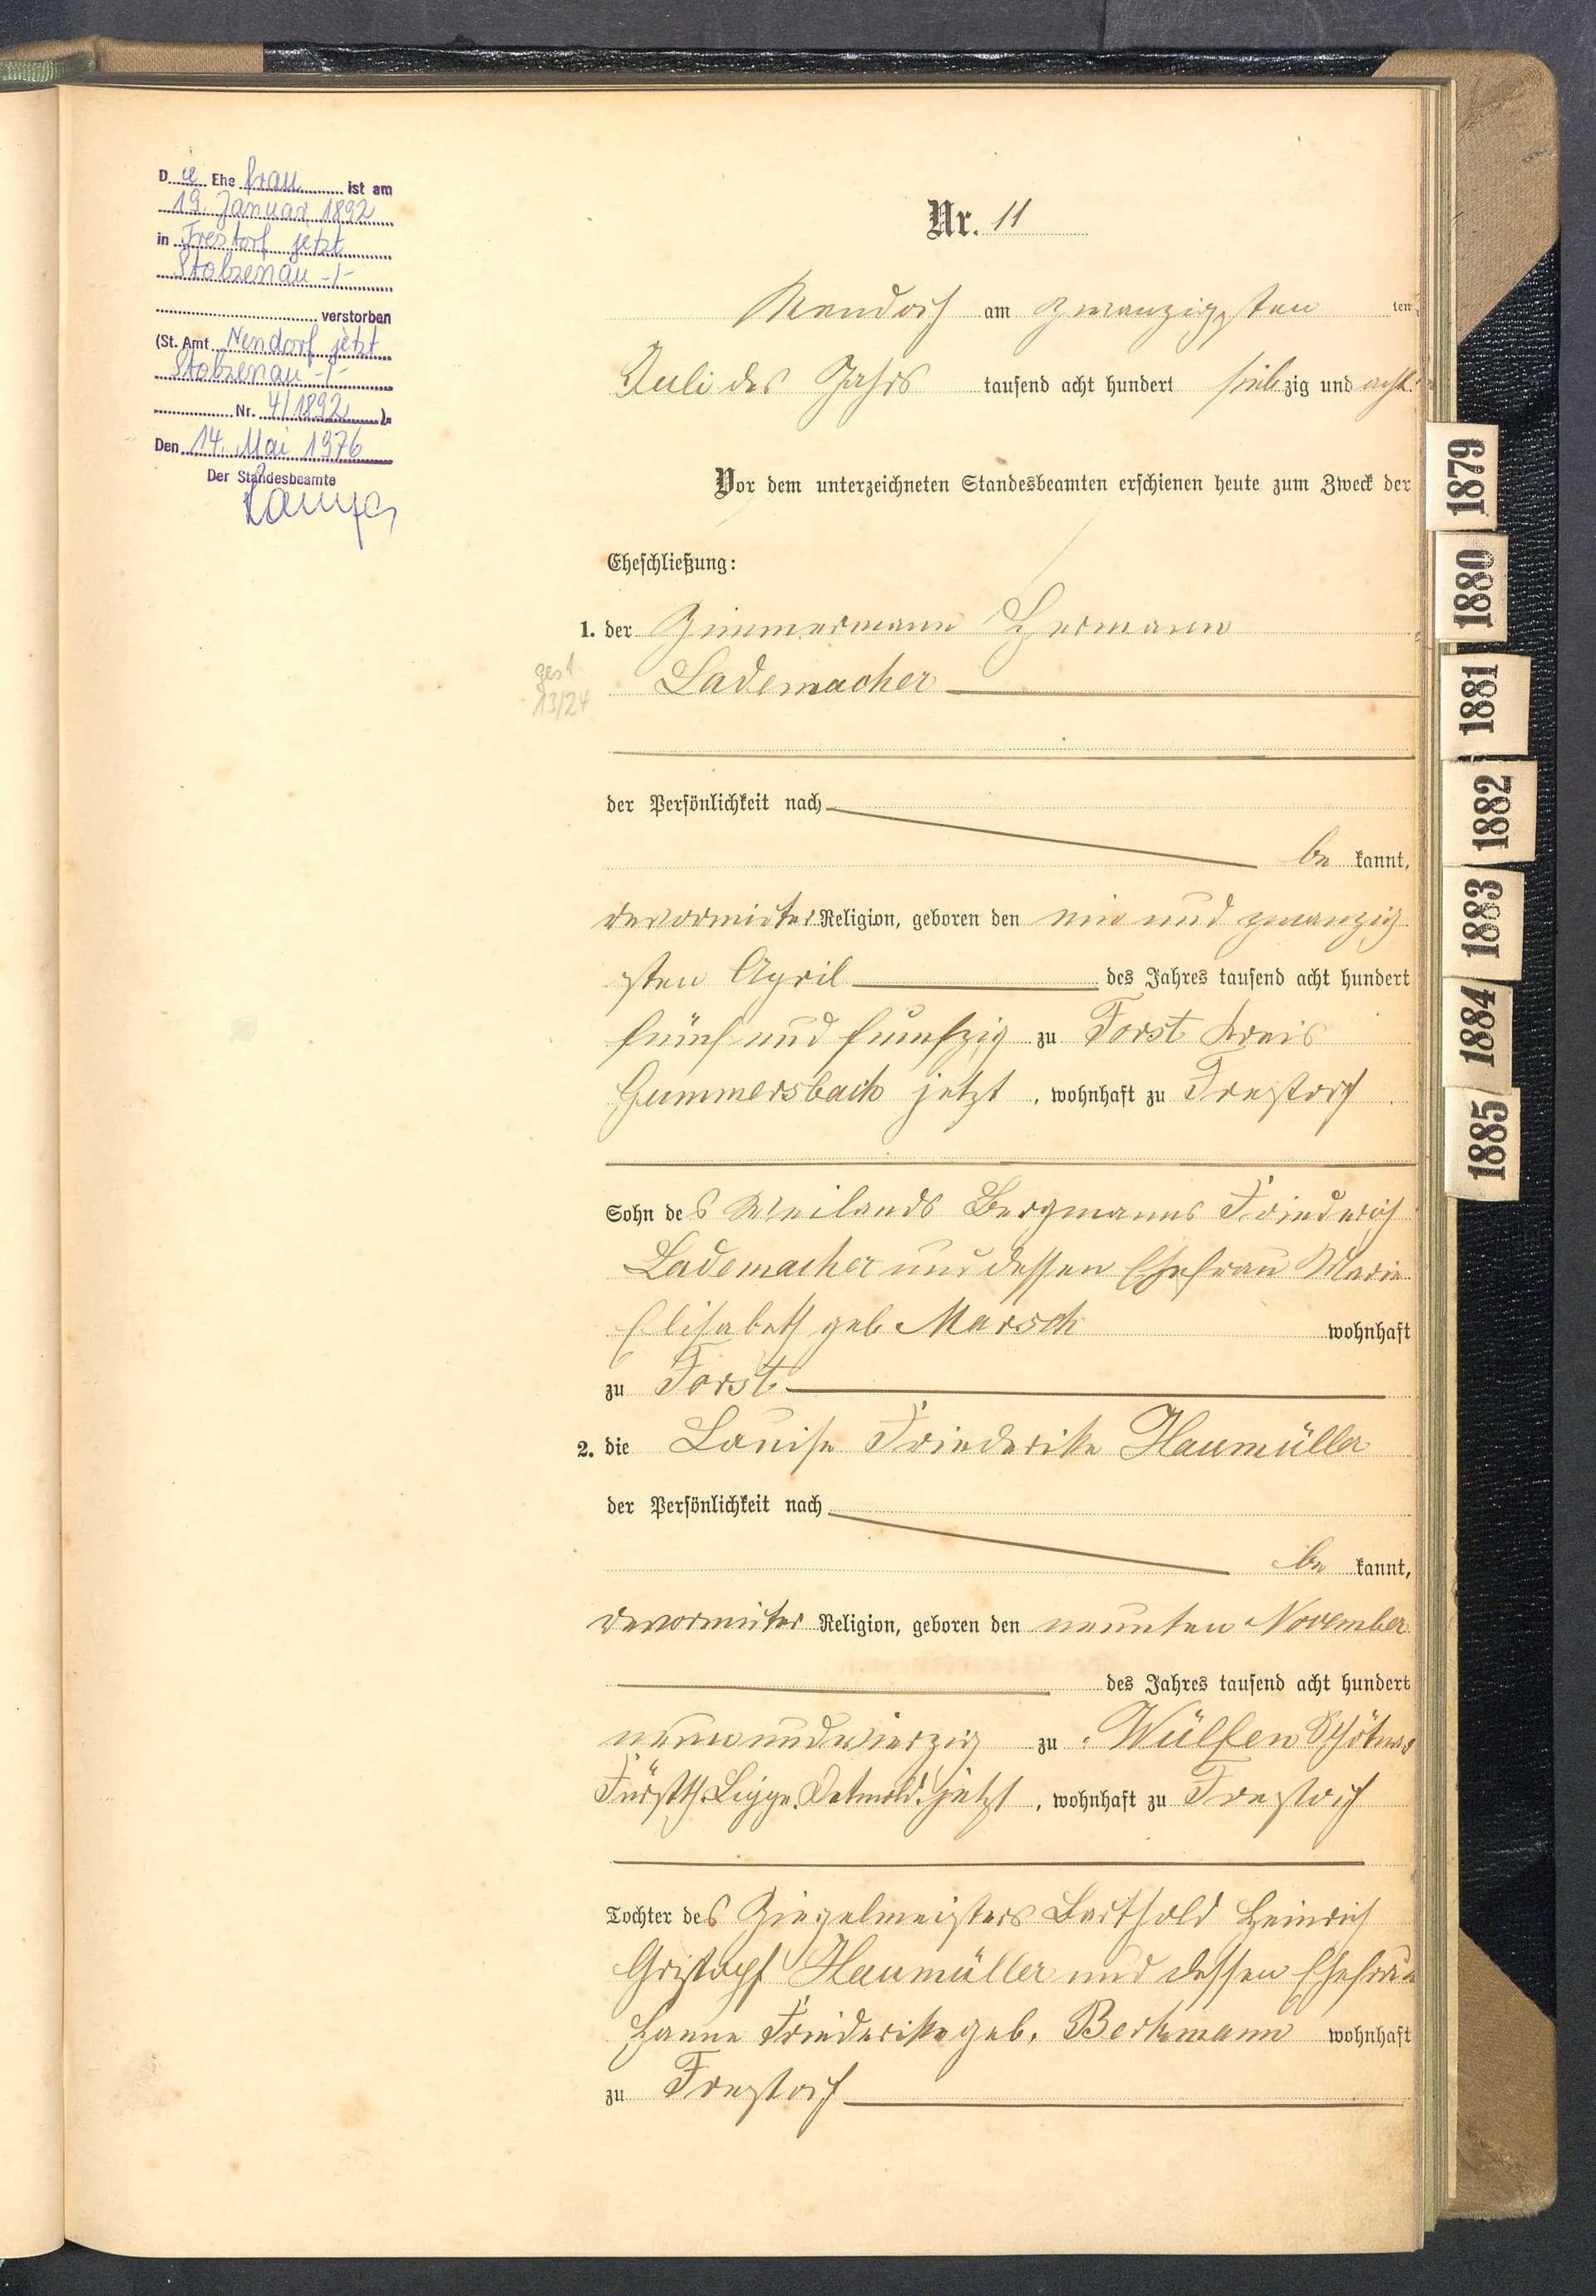 Die Ehefrau ist am
19. Januar 1892
in Frestorf jetzt
Stolzenau -/-
verstorben
(St. Amt Nendorf jetzt
Stolzenau -/-
Nr. 4/1892 ).
Den 14. Mai 1976
Der Standesbeamte
Nr. 11
Nendorf am zwanzigsten ten
Juli des Jahrs tausend acht hundert siebzig und acht.
Vor dem unterzeichneten Standesbeamten erschienen heute zum Zweck der
Eheschließung:
1. der Zimmermann Hermann
gest
13/24
Lademacher
der Persönlichkeit nach
be kannt,
revormirter Religion, geboren den ein und zwanzig
sten April des Jahres tausend acht hundert
fünf und fünfzig zu Forst Kreis
Gummersbach jetzt, wohnhaft zu Frestorf
Sohn des Weilands Bergmanns Friederich
Lademacher und dessen Ehefrau Marie
Elisabeth geb. Marsch wohnhaft
zu Forst
2. die Louise Friederike Haumüller
der Persönlichkeit nach
be kannt,
revormirter Religion, geboren den neunten November
des Jahres tausend acht hundert
neun und vierzig zu Wülfen Schötmar
Fürstth. Lippe. Detmold. jetzt, wohnhaft zu Frestorf
Tochter des Ziegelmeisters Barthold Heinrich
Christoph Haumüller und dessen Ehefrau
Hanne Friederike geb. Berkmann wohnhaft
zu Frestorf
1879
1880
1881
1882
1883
1884
1885